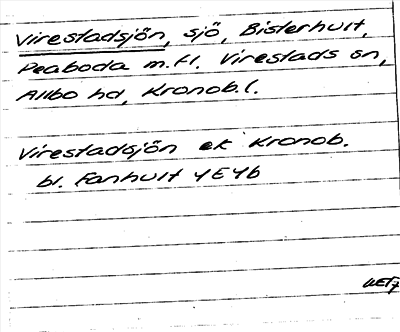 Virestadsjön, sjö, Bisterhult,
Peaboda m.fl. Virestads sn,
Allbo hd, Kronob. l.
Virestadsjön ek Kronob.
bl. Fanhult 4E4b